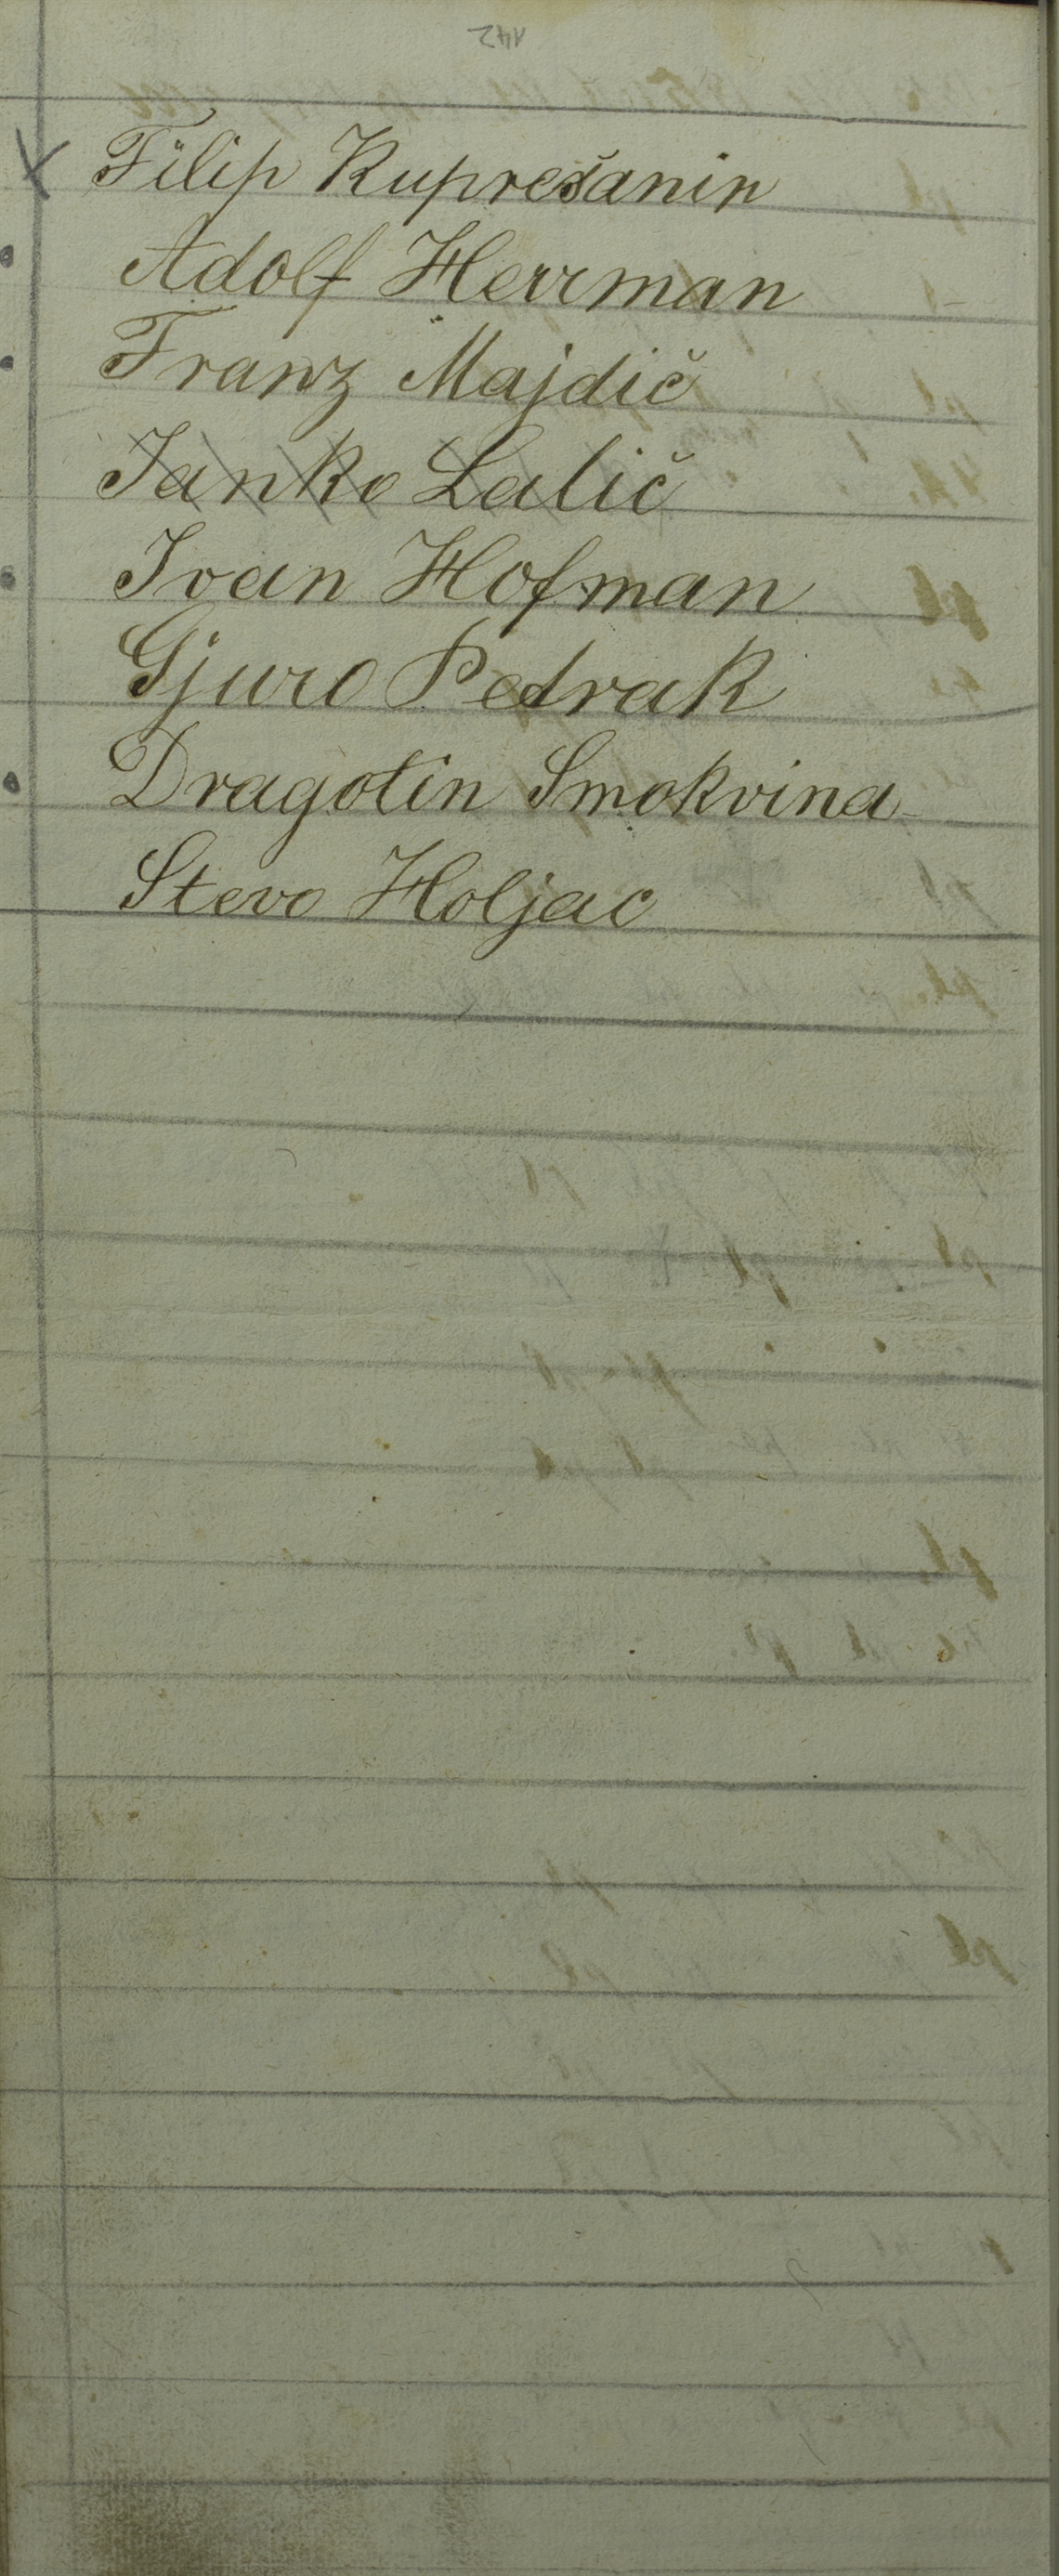 142
Filip Kuprešanin
Adolf Herrman
Franz Majdič
Janko Lalič
Ivan Hofman
Gjuro Petrak
Dragotin Smokvina
Stevo Holjac